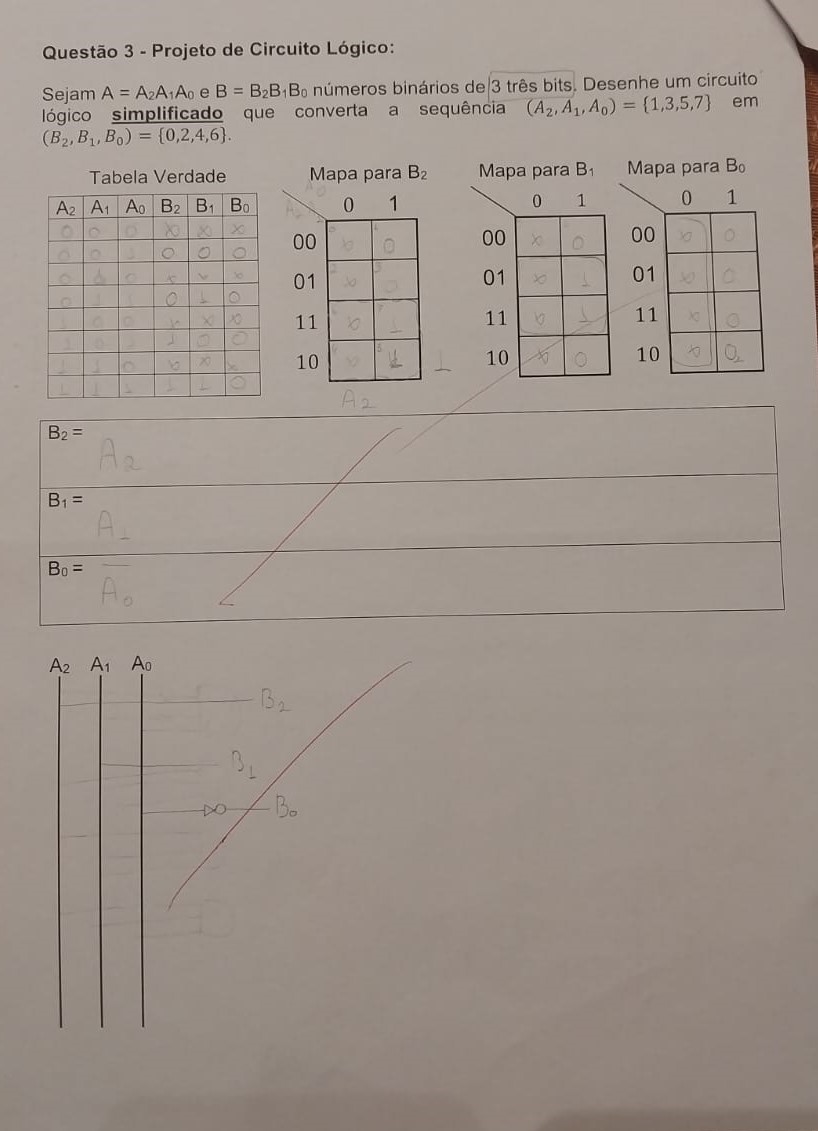 Questão 3 - Projeto de Circuito Lógico:
Sejam A = A₂A₁A₀ e B = B₂B₁B₀ números binários de 3 três bits. Desenhe um circuito
lógico simplificado que converta a sequência (A₂, A₁, A₀) = {1,3,5,7} em
(B₂, B₁, B₀) = {0,2,4,6}.
Tabela Verdade
A₂ A₁ A₀ B₂ B₁ B₀
0 0 0 X X X
0 0 1 0 0 0
0 1 0 X X X
0 1 1 0 1 0
1 0 0 X X X
1 0 1 1 0 0
1 1 0 X X X
1 1 1 1 1 0
Mapa para B₂
0 1
00 X 0
01 X 0
11 X 1
10 X 1 1
A₂
Mapa para B₁
0 1
00 X 0
01 X 1
11 X 1
10 X 0
Mapa para B₀
0 1
00 X 0
01 X 0
11 X 0
10 X 0
B₂ = A₂
B₁ = A₁
B₀ = A̅₀
A₂ A₁ A₀
B₂
B₁
B₀